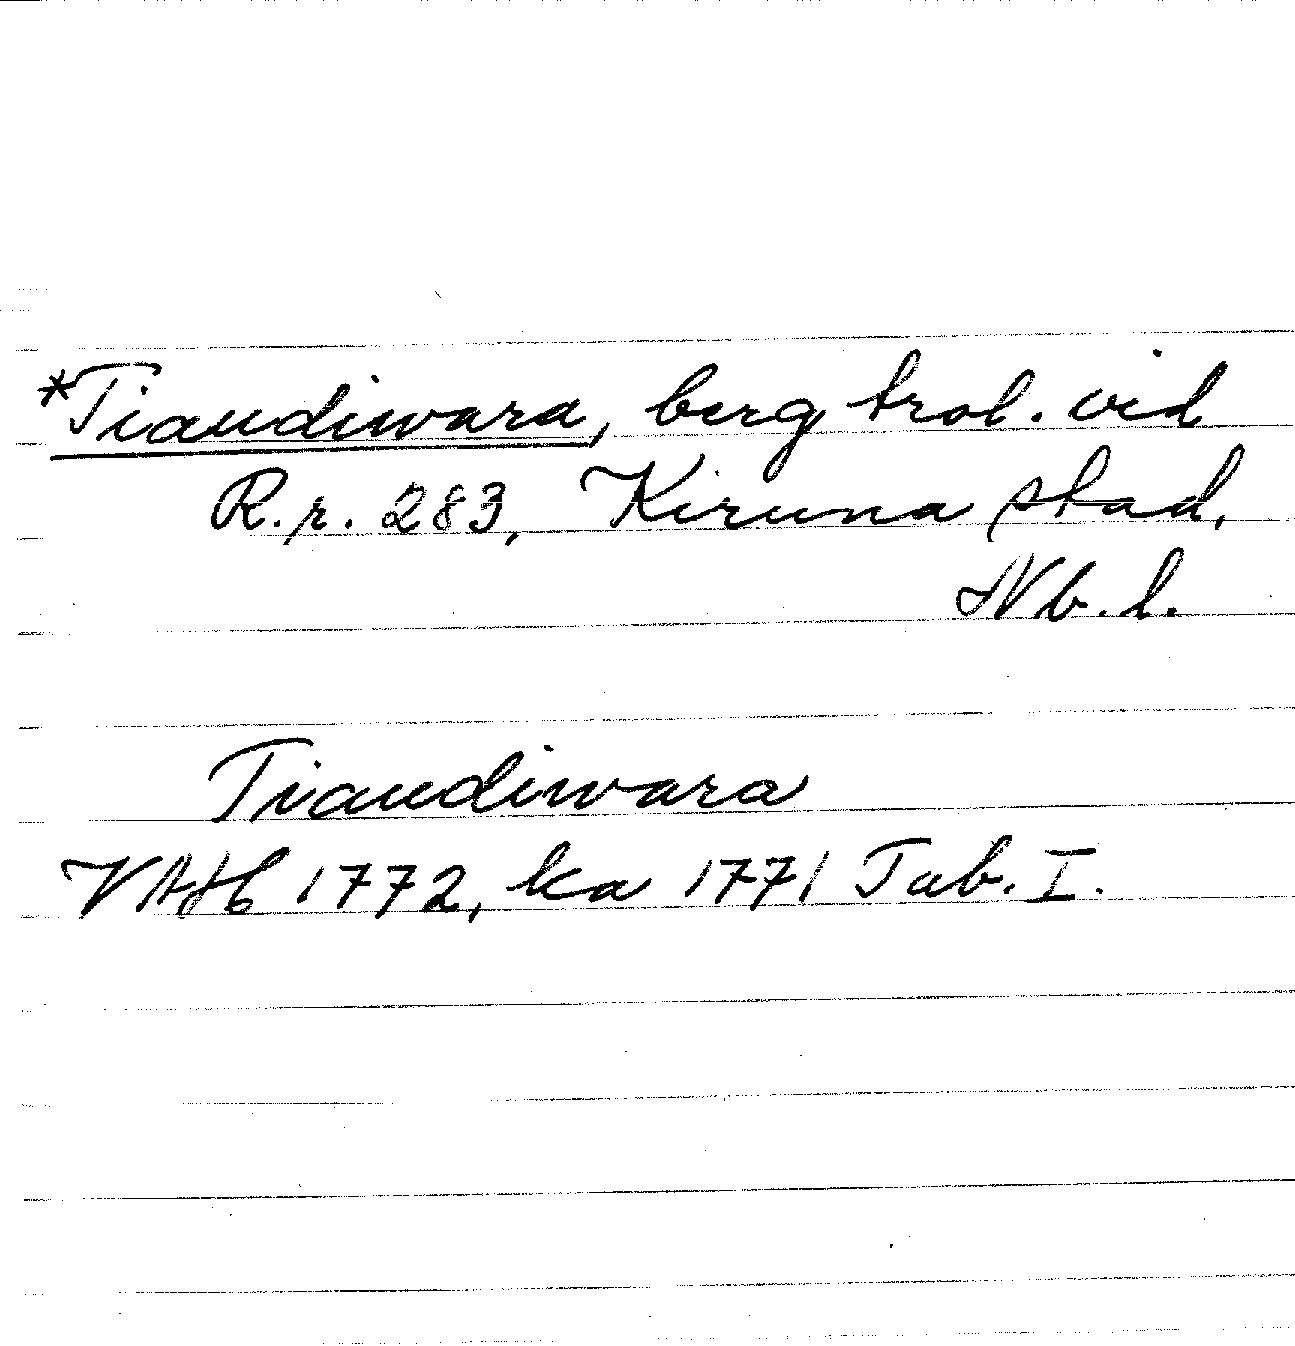 *Tiaudiwara, berg trol. vid
R.r. 283, Kiruna stad,
Nb. l.
Tiaudiwara
VAH 1772, ka 1771 Tab. I.